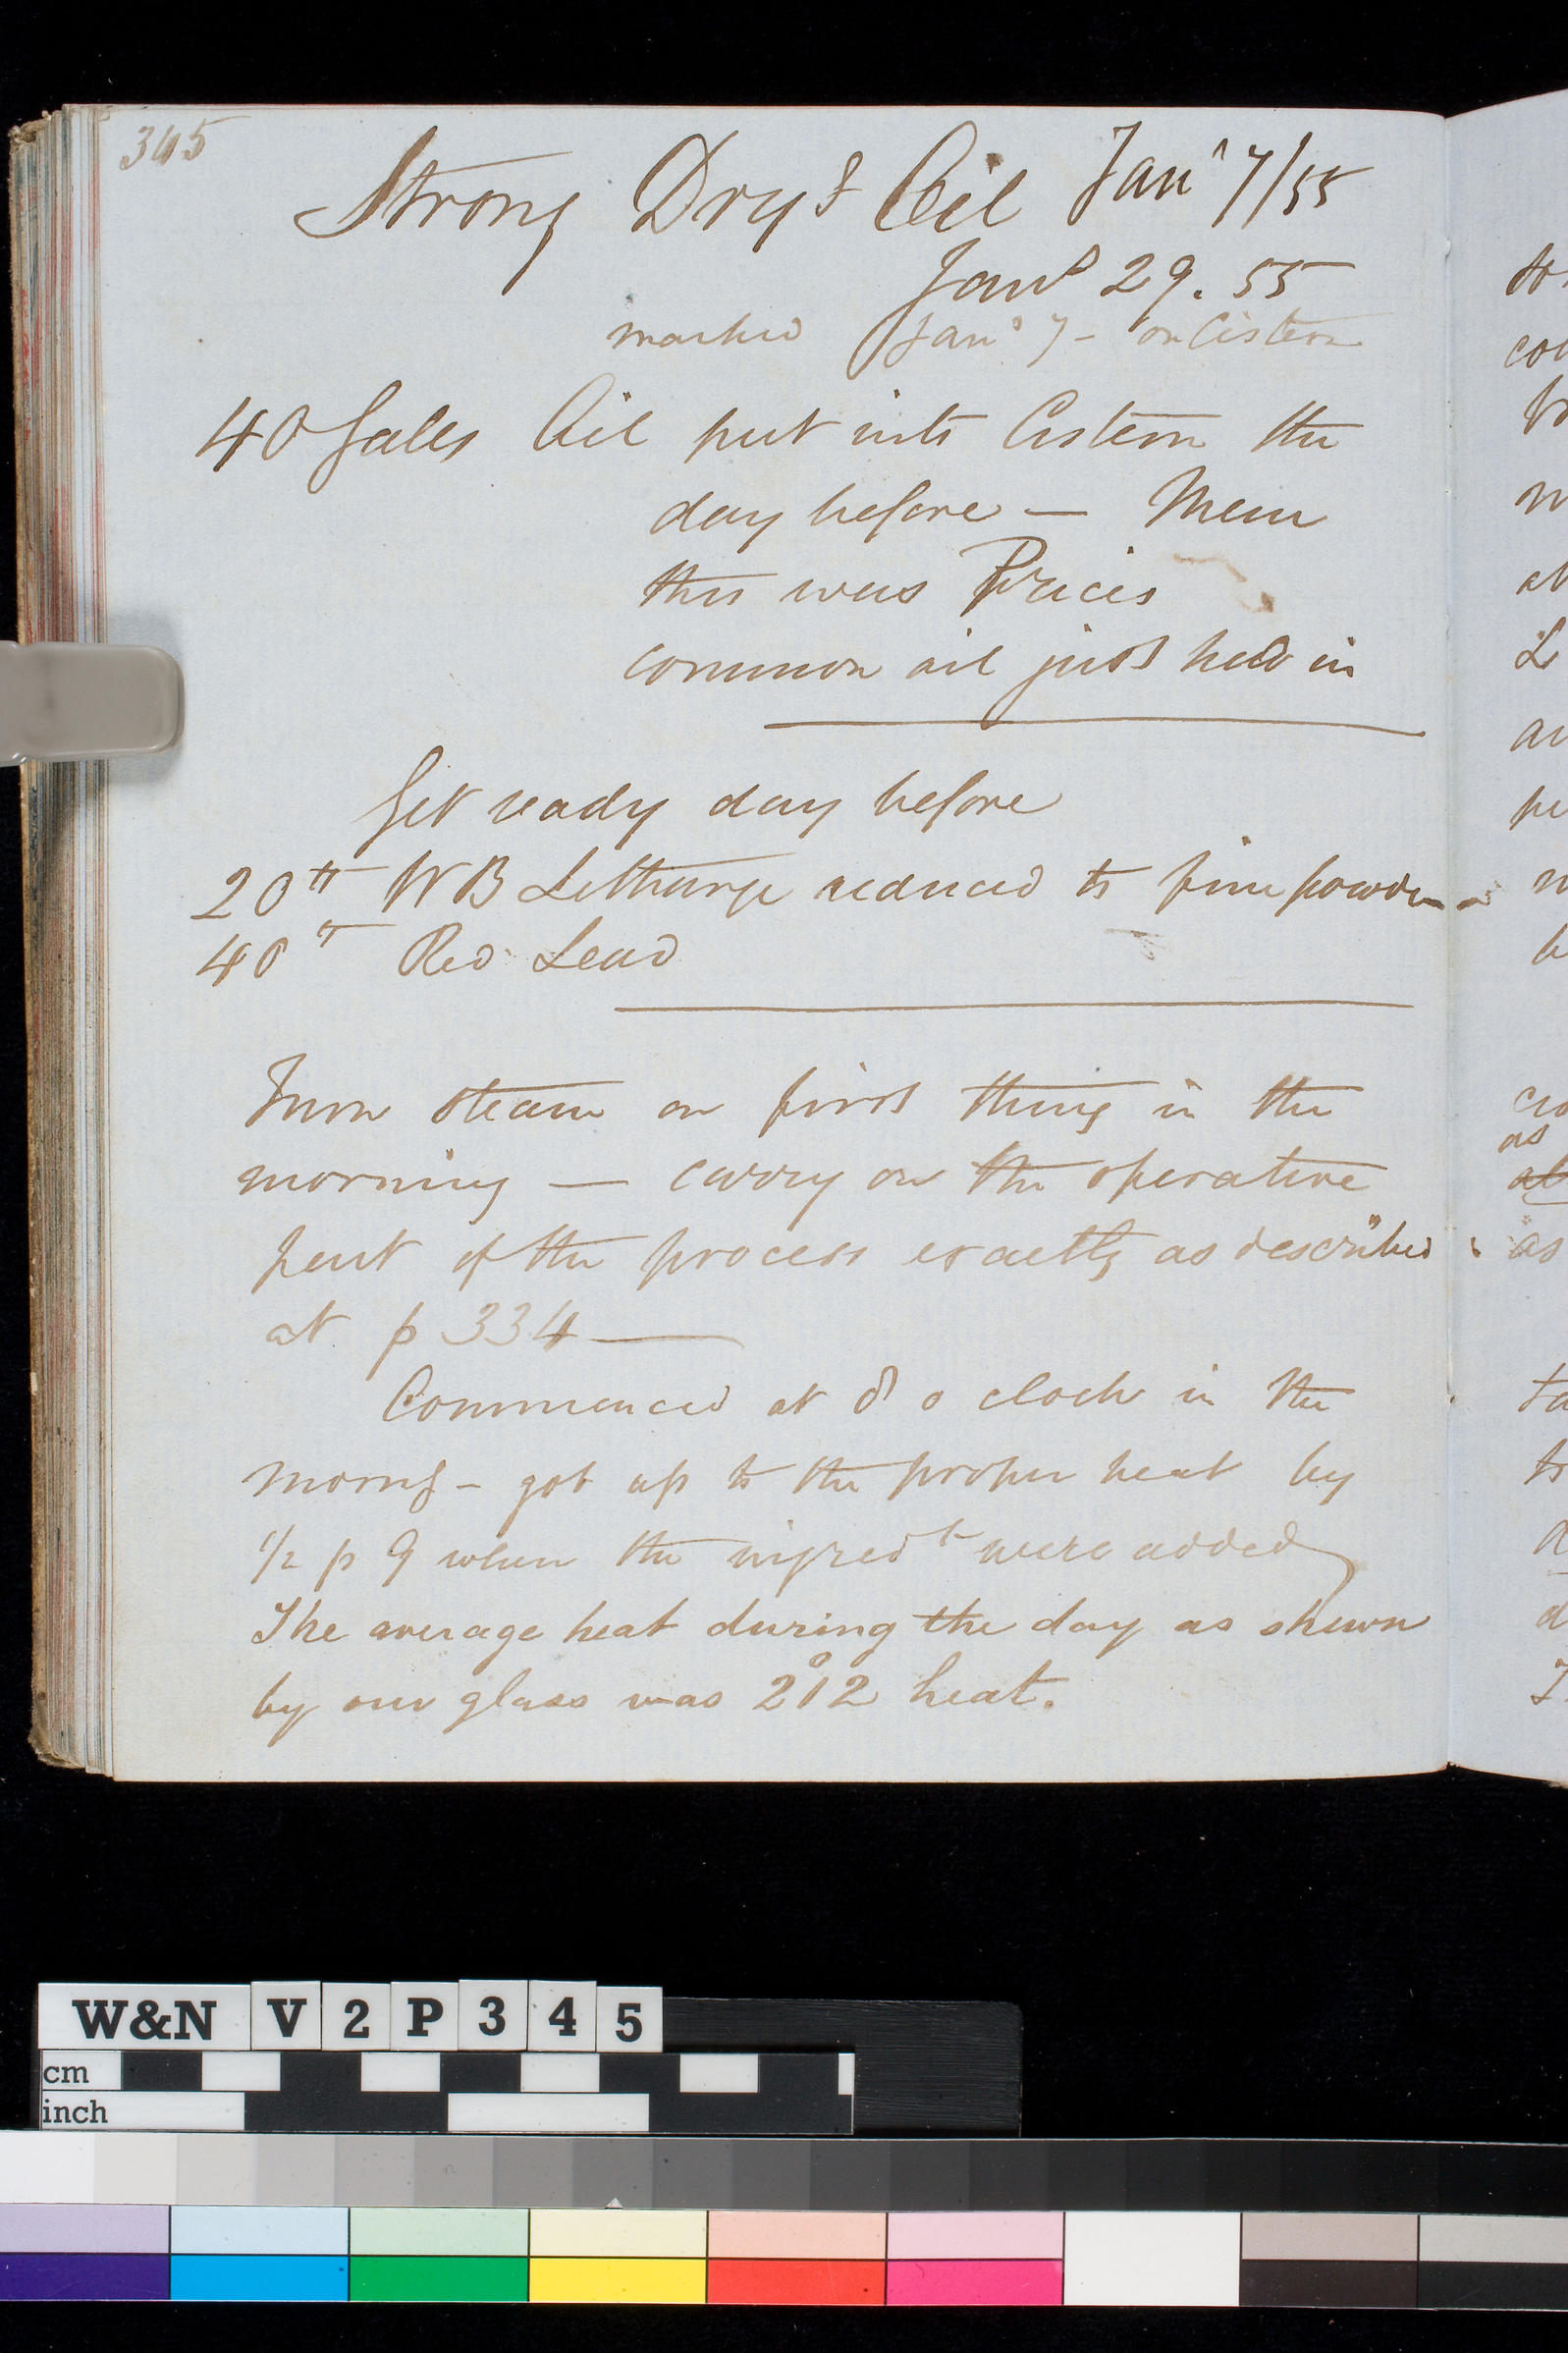 345
Strong Dryg Oil Jany 7/55
Jany 29. 55
marked Jany 7 - on Cistern
40 Galls Oil put into Cistern the
day before — Mem
this was Prices
common oil just held in
Get ready day before
20 lb WB Litharge reduced to fine powder
40 " Red Lead
Turn steam on first thing in the
morning — carry on the operative
part of the process exactly as described
at p 334 —
Commenced at 8 o clock in the
morng - got up to the proper heat by
1/2 p 9 when the ingredts were added
The average heat during the day as shewn
by our glass was 212° heat.
as
as
W&N V2P345
cm
inch